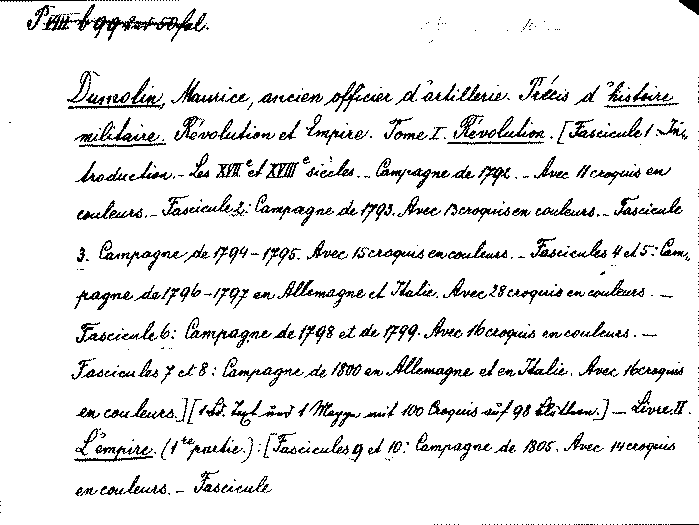 Dumolin, Maurice, ancien officier d'artillerie. Précis d'histoire
militaire. Révolution et Empire. Tome I. Révolution. [Fascicule 1 - In-
troduction. - Les XVIIe et XVIIIe siècles. - Campagne de 1792. - Avec 11 croquis en
couleurs. - Fascicule 2: Campagne de 1793. Avec 13 croquis en couleurs. - Fascicule
3. Campagne de 1794-1795. Avec 15 croquis en couleurs. - Fascicules 4 et 5: Cam-
pagne de 1796-1797 en Allemagne et Italie. Avec 28 croquis en couleurs. -
Fascicule 6: Campagne de 1798 et de 1799. Avec 16 croquis en couleurs. -
Fascicules 7 et 8: Campagne de 1800 en Allemagne et en Italie. Avec 16 croquis
en couleurs.] [1 Bd. Text und 1 Mappe mit 100 Croquis auf 98 Blättern.] - Livre II.
L'empire. (1re partie.): [Fascicules 9 et 10: Campagne de 1805. Avec 14 croquis
en couleurs. - Fascicule